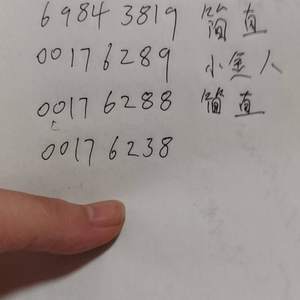 69843819 简直
00176289 小鱼人
00176288 简直
00176238